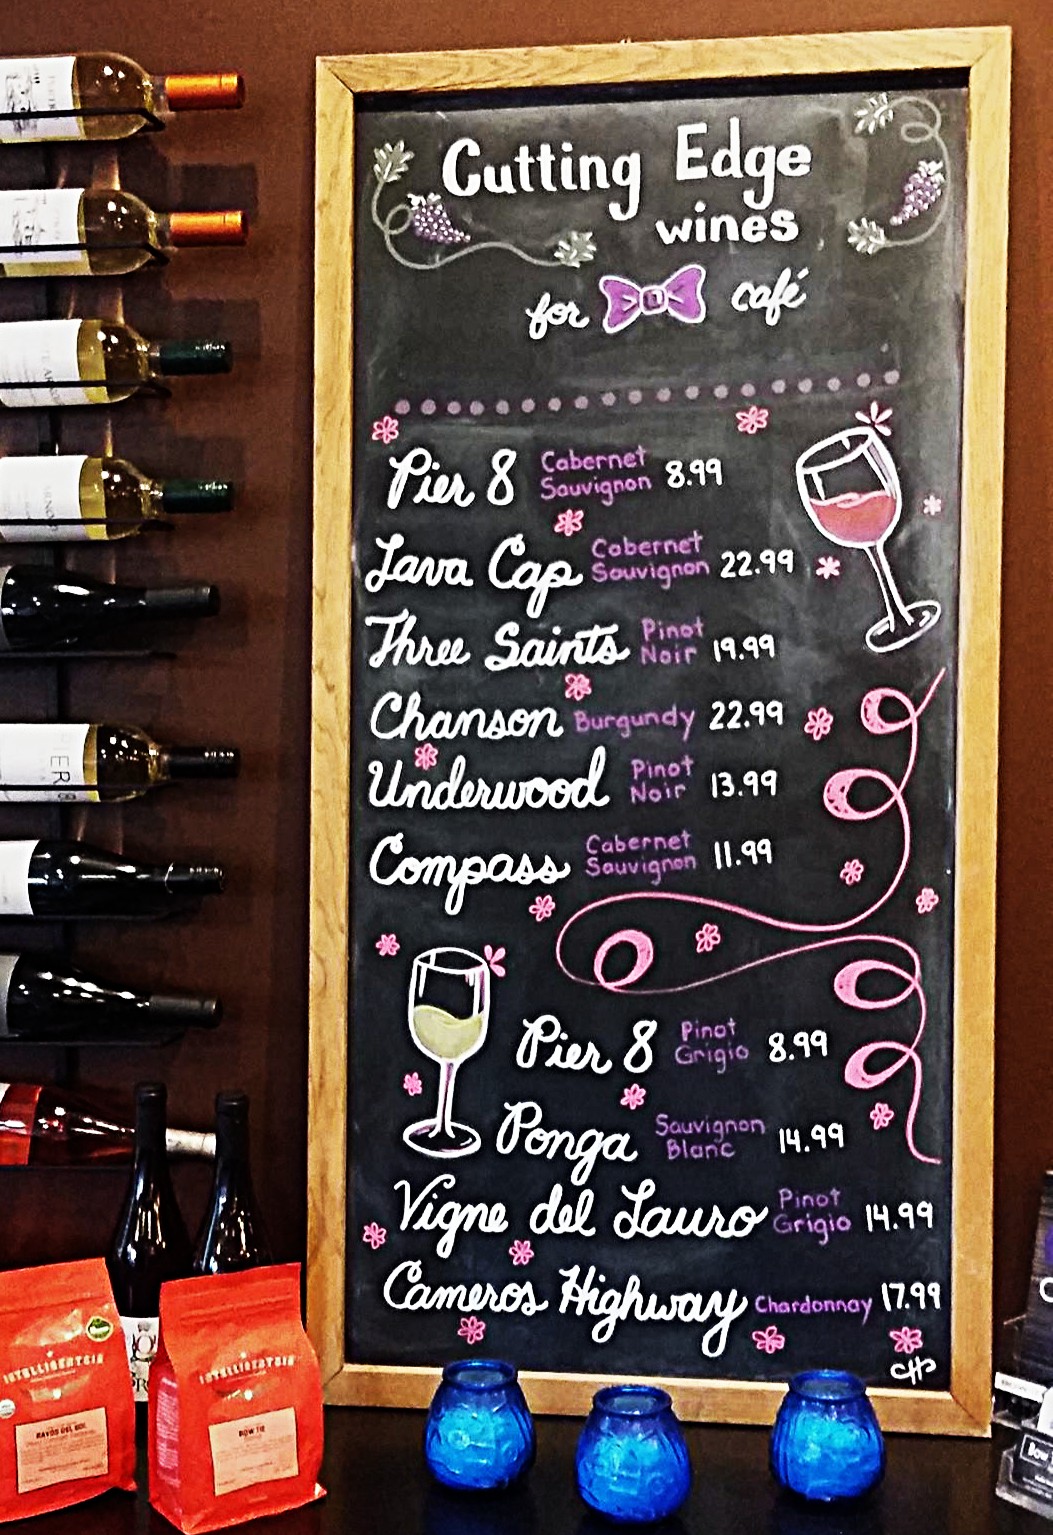 Cutting Edge
wines
for café
Pier 8 Cabernet Sauvignon 8.99
Lava Cap Cabernet Sauvignon 22.99
Three Saints Pinot Noir 19.99
Chanson Burgundy 22.99
Underwood Pinot Noir 13.99
Compass Cabernet Sauvignon 11.99
Pier 8 Pinot Grigio 8.99
Ponga Sauvignon Blanc 14.99
Vigne del Lauro Pinot Grigio 14.99
Cameros Highway Chardonnay 17.99
CH
PIER 8
INTELLIGENTSIA
RAYOS DEL SOL
INTELLIGENTSIA
BOW TIE
Bow